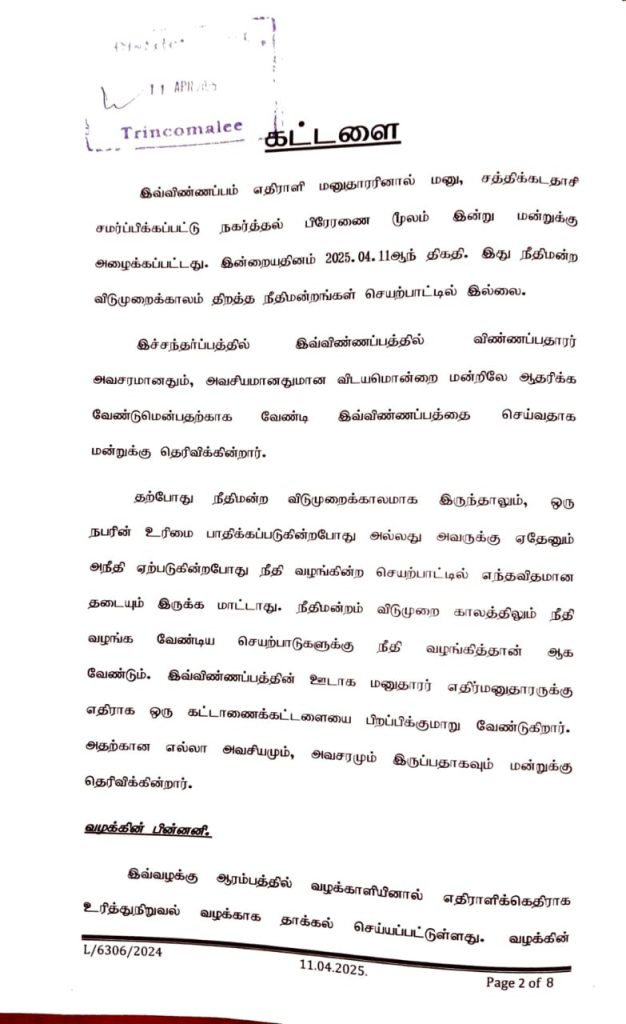 11 APR
Trincomalee
கட்டளை
இவ்விண்ணப்பம் எதிராளி மனுதாரரினால் மனு, சத்திக்கடதாசி
சமர்ப்பிக்கப்பட்டு நகர்த்தல் பிரேரணை மூலம் இன்று மன்றுக்கு
அழைக்கப்பட்டது. இன்றையதினம் 2025.04.11ஆந் திகதி. இது நீதிமன்ற
விடுமுறைக்காலம் திறத்த நீதிமன்றங்கள் செயற்பாட்டில் இல்லை.
இச்சந்தர்ப்பத்தில் இவ்விண்ணப்பத்தில் விண்ணப்பதாரர்
அவசரமானதும், அவசியமானதுமான விடயமொன்றை மன்றிலே ஆதரிக்க
வேண்டுமென்பதற்காக வேண்டி இவ்விண்ணப்பத்தை செய்வதாக
மன்றுக்கு தெரிவிக்கின்றார்.
தற்போது நீதிமன்ற விடுமுறைக்காலமாக இருந்தாலும், ஒரு
நபரின் உரிமை பாதிக்கப்படுகின்றபோது அல்லது அவருக்கு ஏதேனும்
அநீதி ஏற்படுகின்றபோது நீதி வழங்கின்ற செயற்பாட்டில் எந்தவிதமான
தடையும் இருக்க மாட்டாது. நீதிமன்றம் விடுமுறை காலத்திலும் நீதி
வழங்க வேண்டிய செயற்பாடுகளுக்கு நீதி வழங்கித்தான் ஆக
வேண்டும். இவ்விண்ணப்பத்தின் ஊடாக மனுதாரர் எதிர்மனுதாரருக்கு
எதிராக ஒரு கட்டாணைக்கட்டளையை பிறப்பிக்குமாறு வேண்டுகிறார்.
அதற்கான எல்லா அவசியமும், அவசரமும் இருப்பதாகவும் மன்றுக்கு
தெரிவிக்கின்றார்.
வழக்கின் பின்னனி.
இவ்வழக்கு ஆரம்பத்தில் வழக்காளியினால் எதிராளிக்கெதிராக
உரித்துநிறுவல் வழக்காக தாக்கல் செய்யப்பட்டுள்ளது. வழக்கின்
L/6306/2024
11.04.2025.
Page 2 of 8